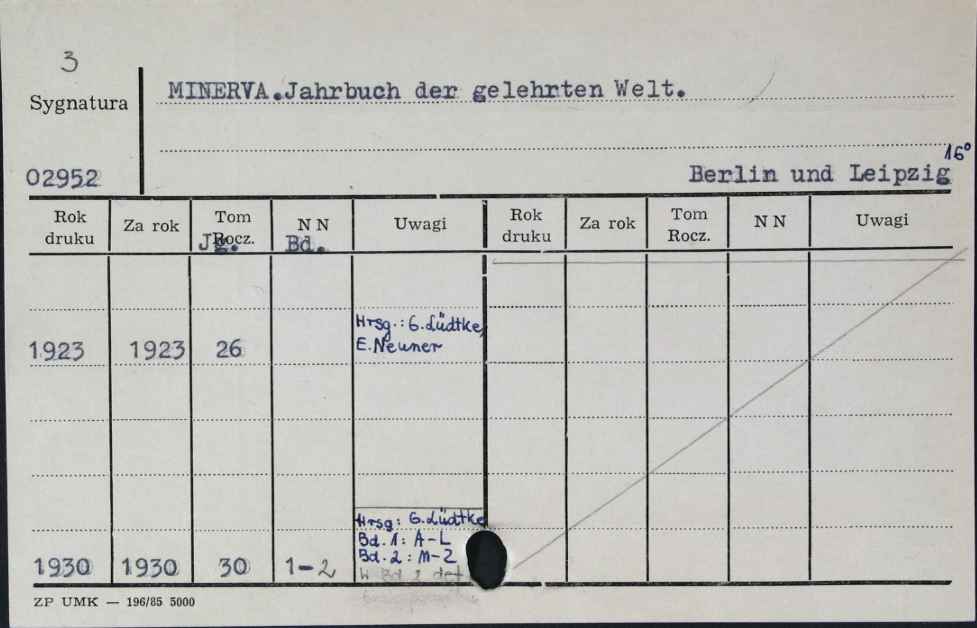 3
Sygnatura
MINERVA.Jahrbuch der gelehrten Welt.
16°
02952
Berlin und Leipzig
Rok druku Za rok Tom Rocz. N N Uwagi Rok druku Za rok Tom Rocz. N N Uwagi
Jg. Bd.
Hrsg.: G. Lüdtke,
1923 1923 26 E. Neuner
Hrsg: G. Lüdtke
Bd. 1: A-L
Bd. 2: M-Z
1930 1930 30 1-2
W Bd 2
ZP UMK — 196/85 5000